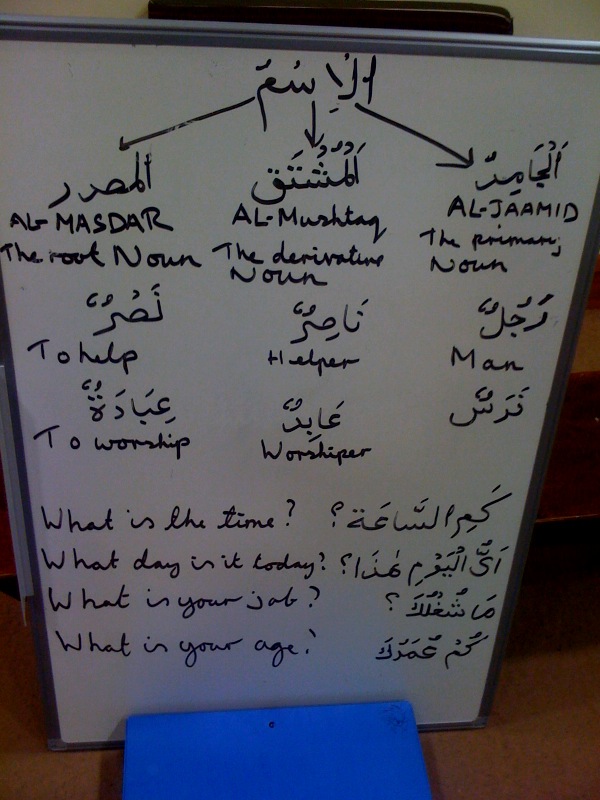 اَلْاِسْمُ
اَلْمصدر اَلْمُشْتَق اَلْجَامِدُ
AL-MASDAR AL-Mushtaq AL-JAAMID
The root Noun The derivative Noun The primary Noun
نَصْرٌ نَاصِرٌ رَجُلٌ
To help Helper Man
عِبَادَةٌ عَابِدٌ فَرَسٌ
To worship Worshiper
What is the time? كَمِ السَّاعَة؟
What day is it today? اَيُّ الْيَوْمِ هٰذَا؟
What is your job? مَا شُغْلُكَ؟
What is your age? كَمْ عُمَرُكَ